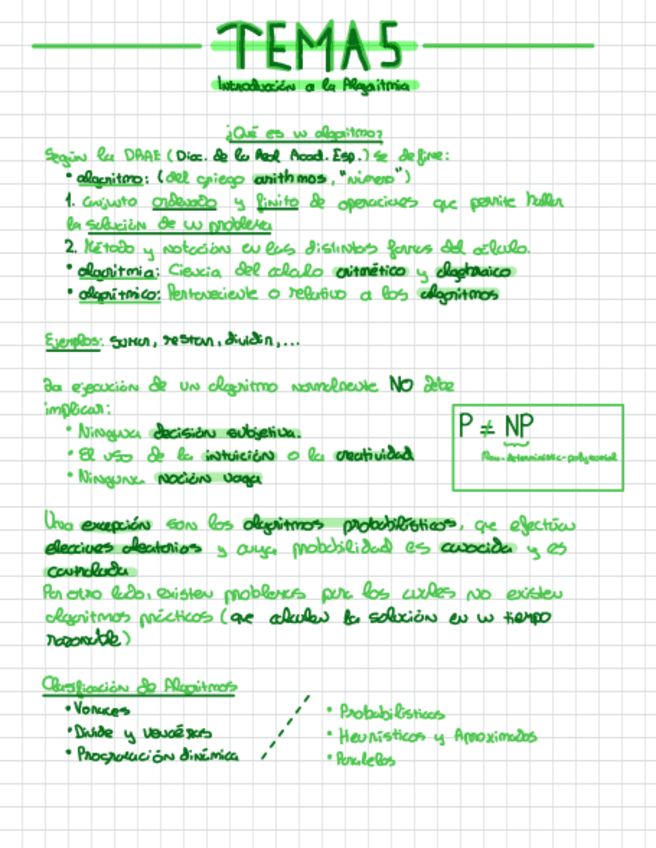 TEMA 5
Introducción a la Algoritmia
¿Qué es un algoritmo?
Según la DRAE (Dicc. de la Real Acad. Esp.) se define:
• algoritmo: (del griego arithmos, "número")
1. Conjunto ordenado y finito de operaciones que permite hallar
la solución de un problema
2. Método y notación en las distintas formas del cálculo.
• algoritmia: Ciencia del cálculo aritmético y algebraico
• algorítmico: Perteneciente o relativo a los algoritmos
Ejemplos: sumar, restar, dividir,...
La ejecución de un algoritmo normalmente NO debe
implicar:
• Ninguna decisión subjetiva.
• El uso de la intuición o la creatividad
• Ninguna noción vaga
P ≠ NP
Non-deterministic-polynomial
Una excepción son los algoritmos probabilísticos, que efectúa
elecciones aleatorios y cuya probabilidad es conocida y es
controlada
Por otro lado, existen problemas para los cuales no existen
algoritmos prácticos (que calculen la solución en un tiempo
razonable)
Clasificación de Algoritmos
• Voraces
• Divide y vencerás
• Programación dinámica
• Probabilísticos
• Heurísticos y Aproximados
• Paralelos